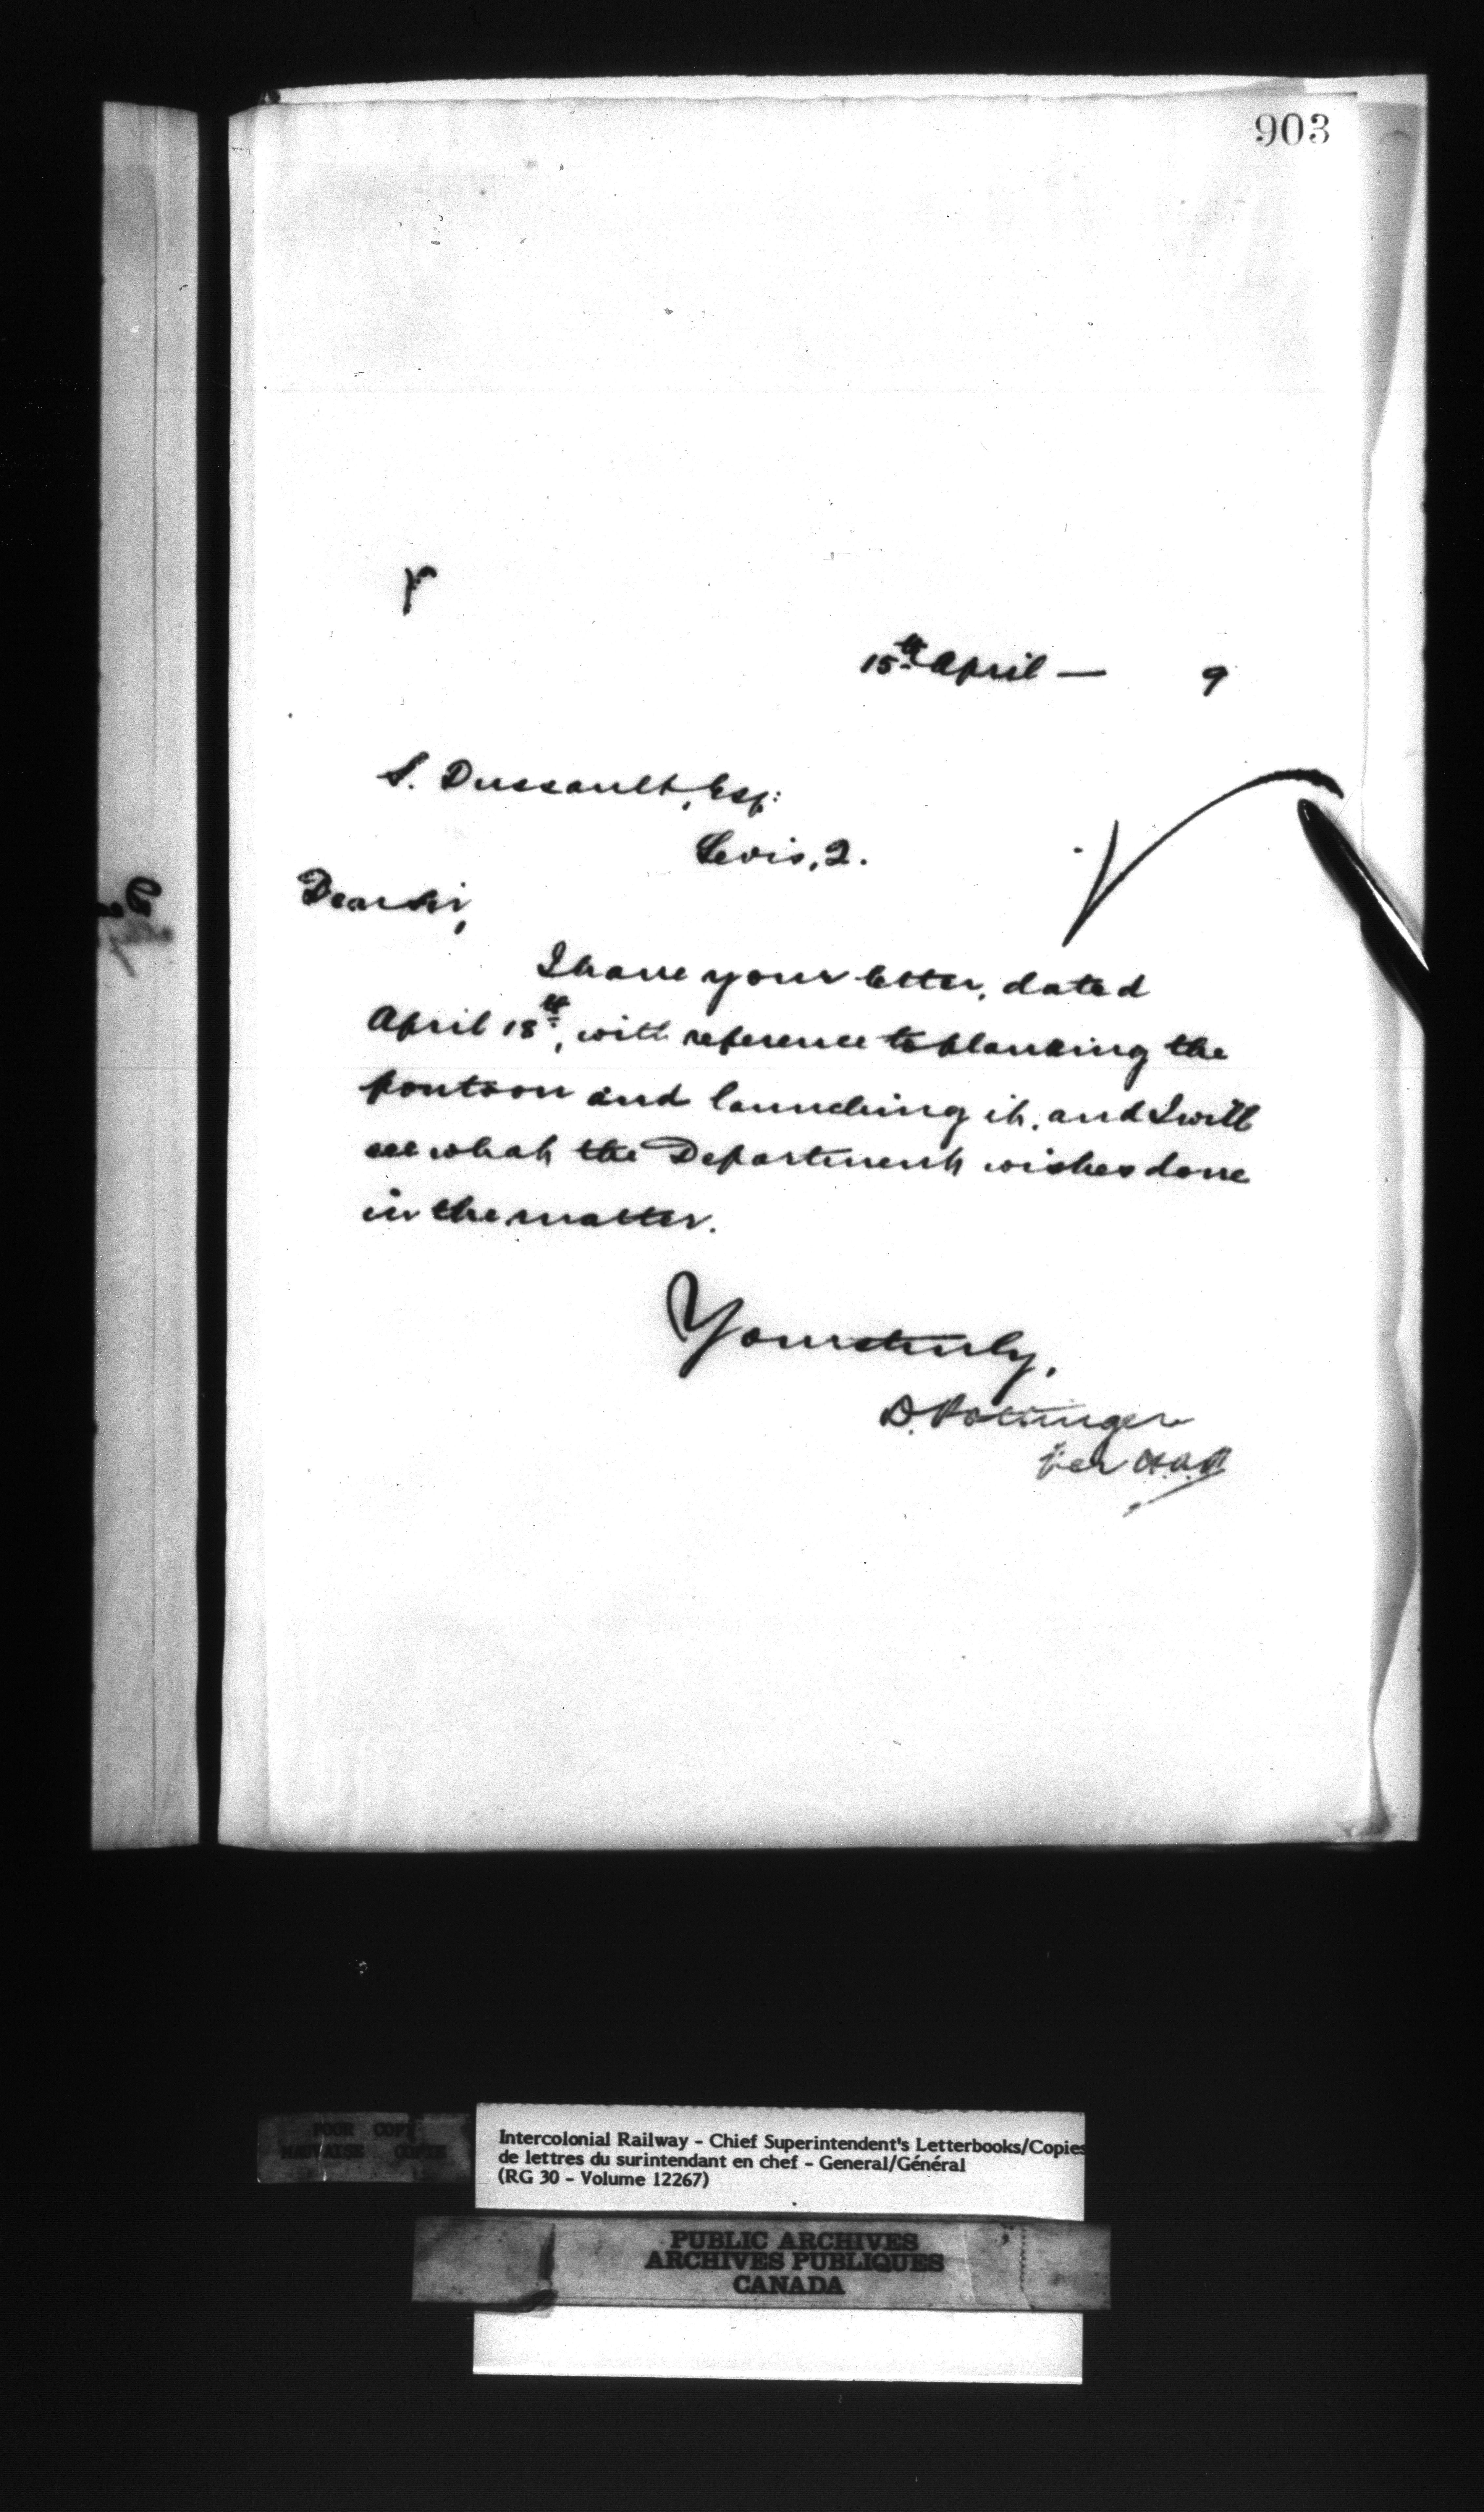 903
15th April — 9
S. Dussault, Esq:
Levis, Q.
Dear Sir,
I have your letter, dated
April 18th, with reference to planking the
pontoon and launching it, and I will
see what the Department wishes done
in the matter.
Yours truly,
D. Pottinger
per
POOR COPY
MAUVAISE COPIE
Intercolonial Railway - Chief Superintendent's Letterbooks/Copies
de lettres du surintendant en chef - General/Général
(RG 30 - Volume 12267)
PUBLIC ARCHIVES
ARCHIVES PUBLIQUES
CANADA